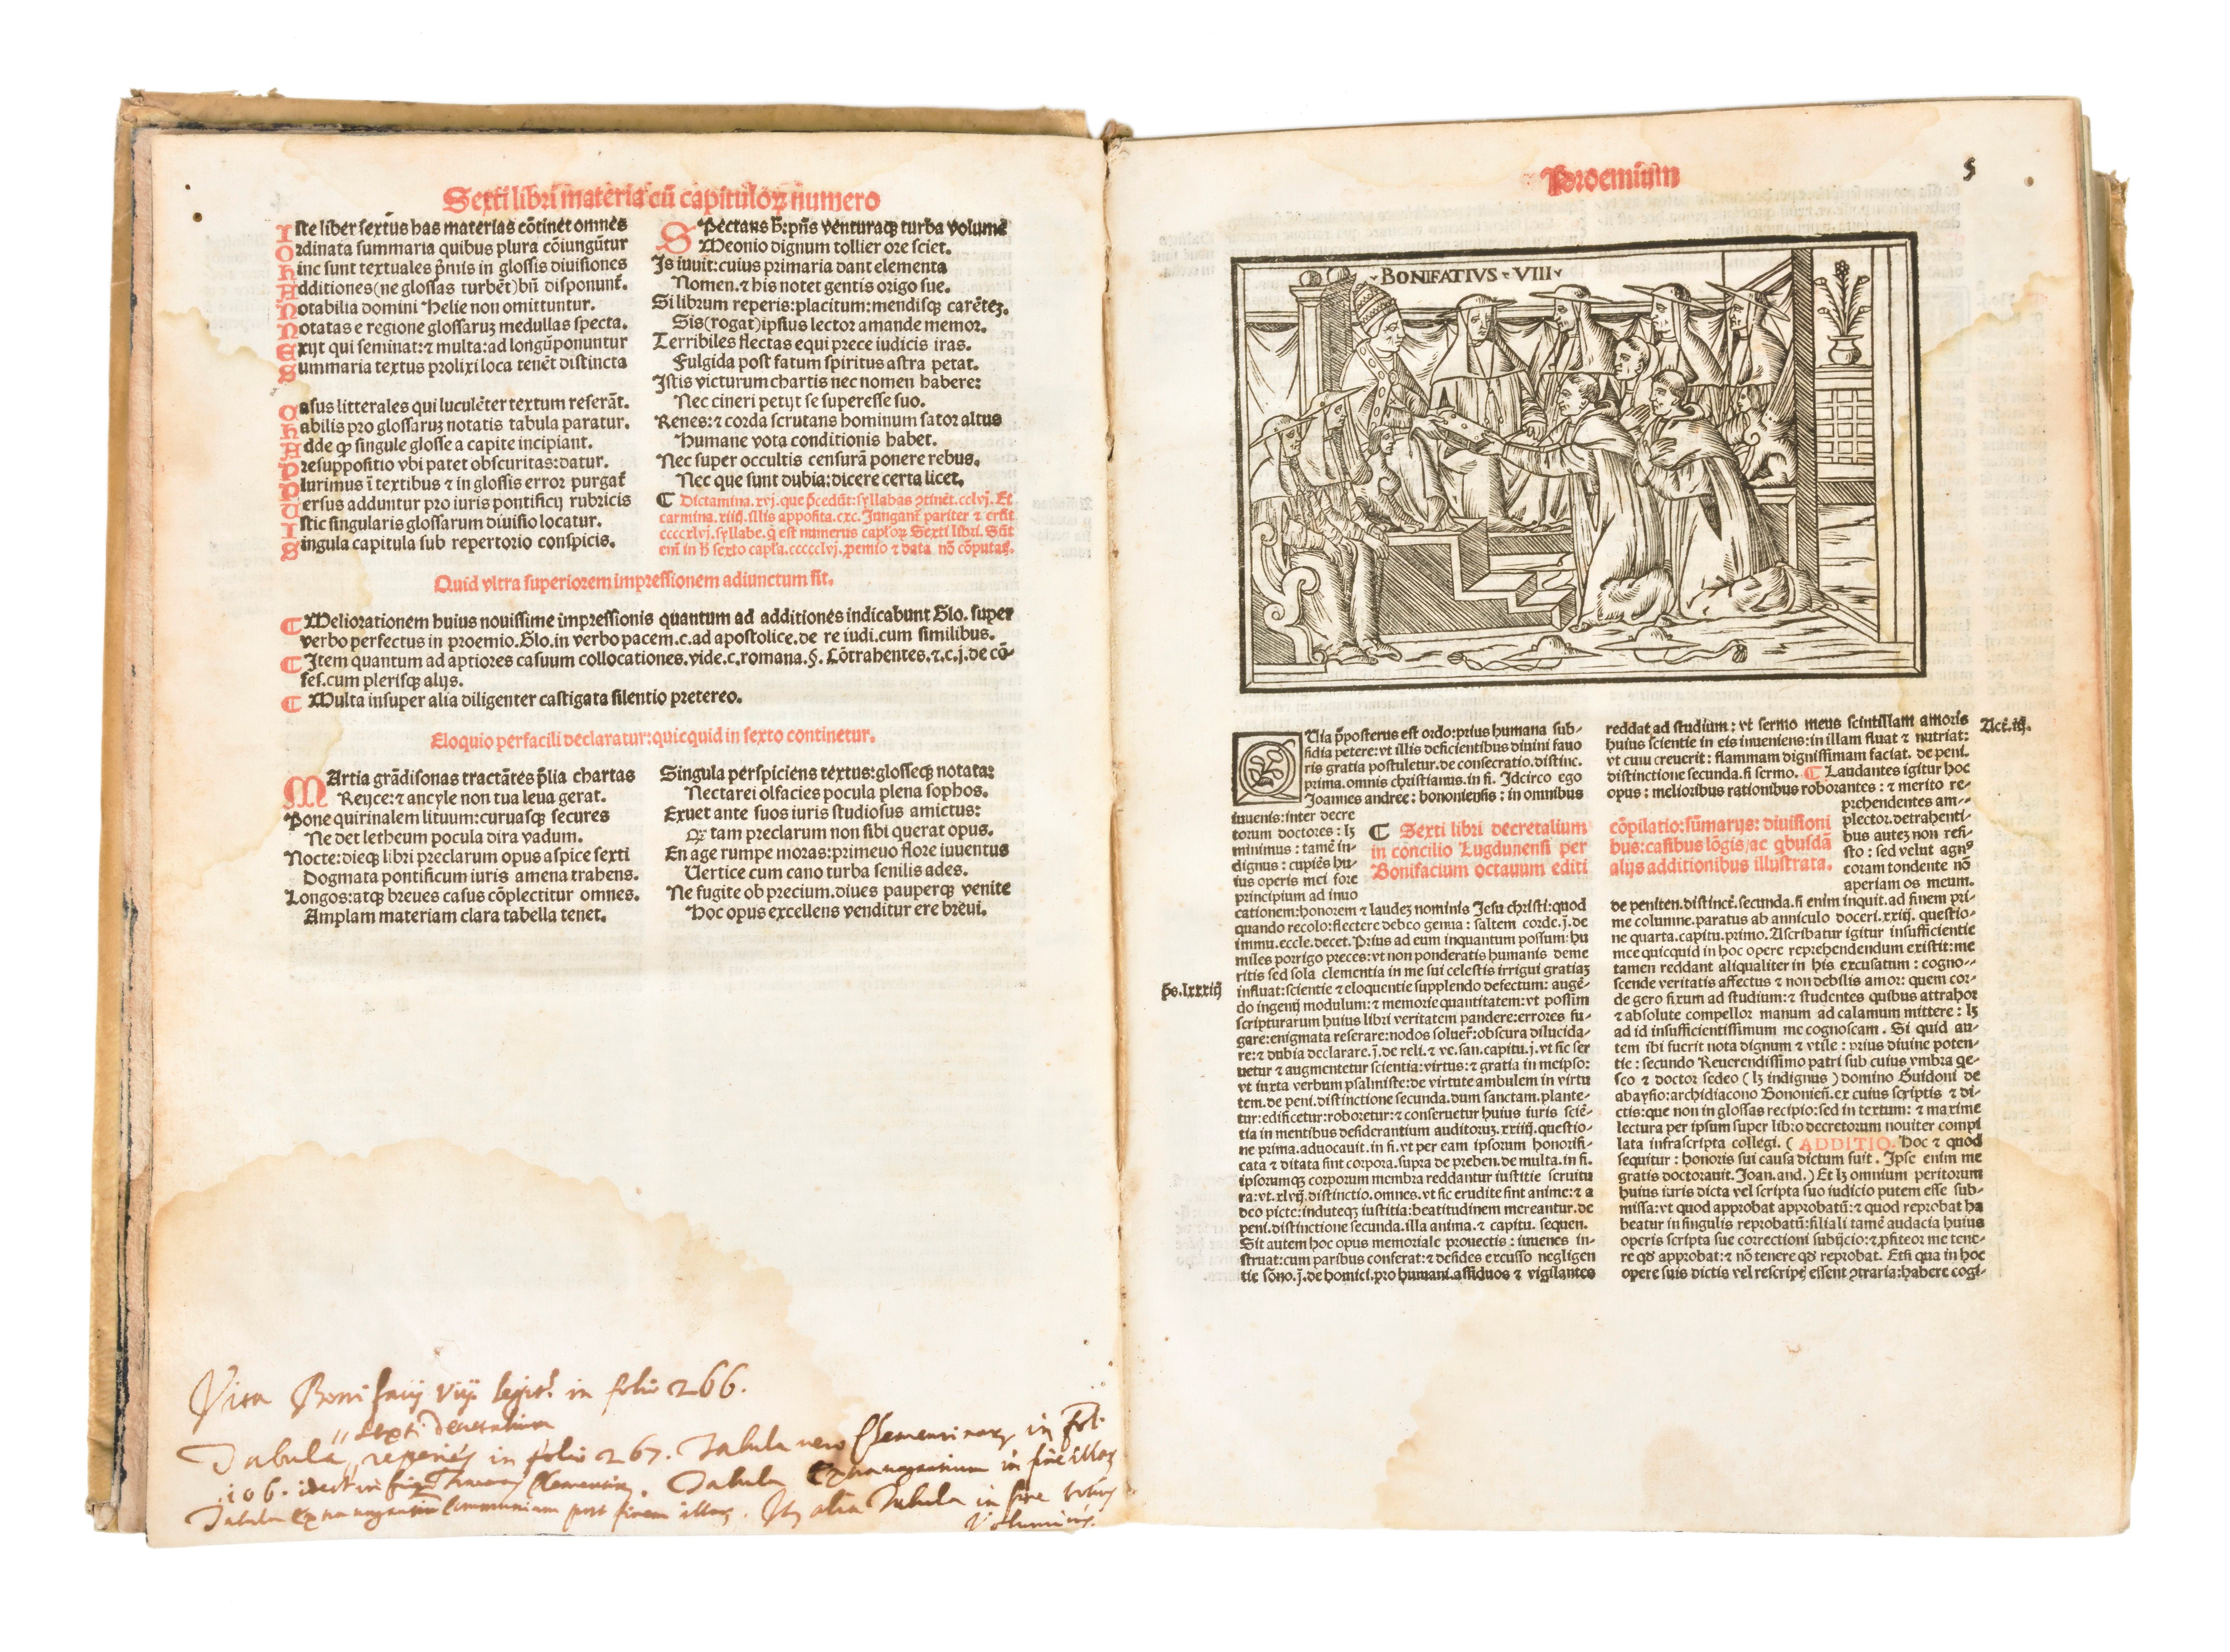 Sexti libri materia cũ capituloꝝ numero
Iste liber sextus has materias cõtinet omnes
Ordinata summaria quibus plura cõiungũtur
Hinc sunt textuales p̃mis in glossis diuisiones
Additiones(ne glossas turbẽt)bñ disponunt̃.
Notabilia domini Helie non omittuntur.
Notatas e regione glossaruꝫ medullas specta.
Exijt qui seminat:⁊ multa:ad longũponuntur
Summaria textus prolixi loca tenẽt distincta
Casus litterales qui luculẽter textum reserãt.
Habilis pro glossaruꝫ notatis tabula paratur.
Adde ꝙ singule glosse a capite incipiant.
Presuppositio vbi patet obscuritas:datur.
Plurimus ĩ textibus ⁊ in glossis error purgat̃
Versus adduntur pro iuris pontificij rubricis
Istic singularis glossarum diuisio locatur.
Singula capitula sub repertorio conspicis.
SPectans h̃:pñs venturaqꝫ turba volumẽ
Meonio dignum tollier ore sciet.
Is iuuit:cuius primaria dant elementa
Nomen.⁊ his notet gentis origo sue.
Si librum reperis:placitum:mendisqꝫ carẽteꝫ.
Sis(rogat)ipsius lector amande memor.
Terribiles flectas equi prece iudicis iras.
Fulgida post fatum spiritus astra petat.
Istis victurum chartis nec nomen habere:
Nec cineri petijt se superesse suo.
Renes:⁊ corda scrutans hominum sator altus
Humane vota conditionis habet.
Nec super occultis censurã ponere rebus.
Nec que sunt dubia:dicere certa licet.
¶ Dictamina.xvj.que p̃cedũt:syllabas ꝯtinẽt.cclvj. Et
carmina.xiiij.illis apposita.cxc. Iungant̃ pariter ⁊ erũt
ccccxlvj.syllabe.q̃ est numerus cap̃loꝝ Sexti libri. Sũt
em̃ in h̃ sexto cap̃la.ccccclvj.p̱emio ⁊ data nõ cõputat̃.
Quid vltra superiorem impressionem adiunctum sit.
¶ Meliorationem huius nouissime impressionis quantum ad additiones indicabunt Glo. super
verbo perfectus in proemio.Glo.in verbo pacem.c.ad apostolice.de re iudi.cum similibus.
¶ Item quantum ad aptiores casuum collocationes.vide.c.romana.§. Cõtrahentes.⁊.c.j.de cõ-
fes.cum plerisqꝫ alijs.
¶ Multa insuper alia diligenter castigata silentio pretereo.
Eloquio perfacili declaratur:quicquid in sexto continetur.
MArtia grãdisonas tractãtes p̃lia chartas
Reijce:⁊ ancyle non tua leua gerat.
Pone quirinalem lituum:curuasqꝫ secures
Ne det letheum pocula dira vadum.
Nocte:dieqꝫ libri preclarum opus aspice sexti
Dogmata pontificum iuris amena trahens.
Longos:atqꝫ breues casus cõplectitur omnes.
Amplam materiam clara tabella tenet.
Singula perspiciens textus:glosseqꝫ notata:
Nectarei olfacies pocula plena sophos.
Exuet ante suos iuris studiosus amictus:
Qꝫ tam preclarum non sibi querat opus.
En age rumpe moras:primeuo flore iuuentus
Vertice cum cano turba senilis ades.
Ne fugite ob precium.diues pauperqꝫ venite
Hoc opus excellens venditur ere breui.
Vita Bonifacij viij. legit̃ in folio 266.
Sexti Decretalium
Tabula reperies in folio 267. Tabula vero Clementinarꝫ in fol.
106. Tabula Extravagantium in fine illaꝝ
Tabula Extravagantiũ Communium post finem illaꝝ. Itꝫ alia Tabula in fine totius
Voluminis.
Proemium
5
BONIFATIVS VIII
QVia p̃posterus est ordo:prius humana sub-
sidia petere:vt illis deficientibus diuini fauo
ris gratia postuletur.de consecratio.distinc.
prima.omnis christianus.in fi. Idcirco ego
Joannes andree: bononiensis: in omnibus
iuuenis:inter decre
torum doctores: lꝫ
minimus: tamẽ in-
dignus: cupiẽs hu-
ius operis mei fore
principium ad inuo
cationem:honorem ⁊ laudeꝫ nominis Jesu christi:quod
quando recolo:flectere debeo genua: saltem corde.j.de
immu.eccle.decet. Prius ad eum inquantum possum:hu
miles porrigo preces:vt non ponderatis humanis deme
ritis sed sola clementia in me sui celestis irrigui gratiaꝫ
Ps.lxxxiij
influat:scientie ⁊ eloquentie supplendo defectum: augẽ-
do ingenij modulum:⁊ memorie quantitatem:vt possim
scripturarum huius libri veritatem pandere:errores fu-
gare:enigmata reserare:nodos soluer̃:obscura dilucida-
re:⁊ dubia declarare.j.de reli.⁊ ve.san.capitu.j.vt sic ser
uetur ⁊ augmentetur scientia:virtus:⁊ gratia in meipso:
vt iuxta verbum psalmiste:de virtute ambulem in virtu
tem.de peni.distinctione secunda.dum sanctam.plante-
tur:edificetur:roboretur:⁊ conseruetur huius iuris sciẽ-
tia in mentibus desiderantium auditoruꝫ.xxiiij.questio-
ne prima.aduocauit.in fi.vt per eam ipsorum honorifi-
cata ⁊ ditata sint corpora.supra de preben.de multa.in fi.
ipsorumqꝫ corporum membra reddantur iustitie seruitu
ra:vt.xlvij.distinctio.omnes.vt sic erudite sint anime:⁊ a
deo picte:induteqꝫ iustitia:beatitudinem mereantur.de
peni.distinctione secunda.illa anima.⁊ capitu. sequen.
Sit autem hoc opus memoriale prouectis: iuuenes in-
struat:cum paribus conferat:⁊ desides excusso negligen
tie sõno.j.de homici.pro humani.assiduos ⁊ vigilantes
¶ Sexti libri decretalium
in concilio Lugdunensi per
Bonifacium octauum editi
cõpilatio:sũmarijs: diuisioni
bus:casibus lõgis/ac q̃busdã
alijs additionibus illustrata.
reddat ad studium: vt sermo meus scintillam amoris
Act.iij.
huius scientie in eis inueniens:in illam fluat ⁊ nutriat:
vt cum creuerit: flammam dignissimam faciat. de peni.
distinctione secunda.si sermo. ¶ Laudantes igitur hoc
opus: melioribus rationibus roborantes: ⁊ merito re-
prehendentes am-
plector.detrahenti-
bus auteꝫ non resi-
sto: sed velut agnꝰ
coram tondente nõ
aperiam os meum.
de peniten.distinct.secunda.si enim inquit.ad finem pri-
me columne.paratus ab anniculo doceri.xxiiij. questio-
ne quarta.capitu.primo.Ascribatur igitur insufficientie
mee quicquid in hoc opere reprehendendum existit:me
tamen reddant aliqualiter in his excusatum: cogno-
scende veritatis affectus ⁊ non debilis amor: quem cor-
de gero fixum ad studium:⁊ studentes quibus attrahor
⁊ absolute compellor manum ad calamum mittere: lꝫ
ad id insufficientissimum me cognoscam. Si quid au-
tem ibi fuerit nota dignum ⁊ vtile: prius diuine poten-
tie: secundo Reuerendissimo patri sub cuius vmbra qe-
sco ⁊ doctor sedeo (lꝫ indignus) domino Guidoni de
abaysio:archidiacono Bononieñ.ex cuius scriptis ⁊ di-
ctis:que non in glossas recipio:sed in textum: ⁊ maxime
lectura per ipsum super libro decretorum nouiter compi
lata infrascripta collegi. (ADDITIO. Hoc ⁊ quod
sequitur: honoris sui causa dictum fuit. Ipse enim me
gratis doctorauit. Joan.and.) Et lꝫ omnium peritorum
huius iuris dicta vel scripta suo iudicio putem esse sub-
missa:vt quod approbat approbatũ:⁊ quod reprobat ha
beatur in singulis reprobatũ:filiali tamẽ audacia huius
operis scripta sue correctioni subijcio:⁊ ꝓfiteor me tene-
re qđ approbat:⁊ nõ tenere qđ reprobat. Etsi qua in hoc
opere suis dictis vel rescriptꝭ essent ꝯtraria:habere cogi-